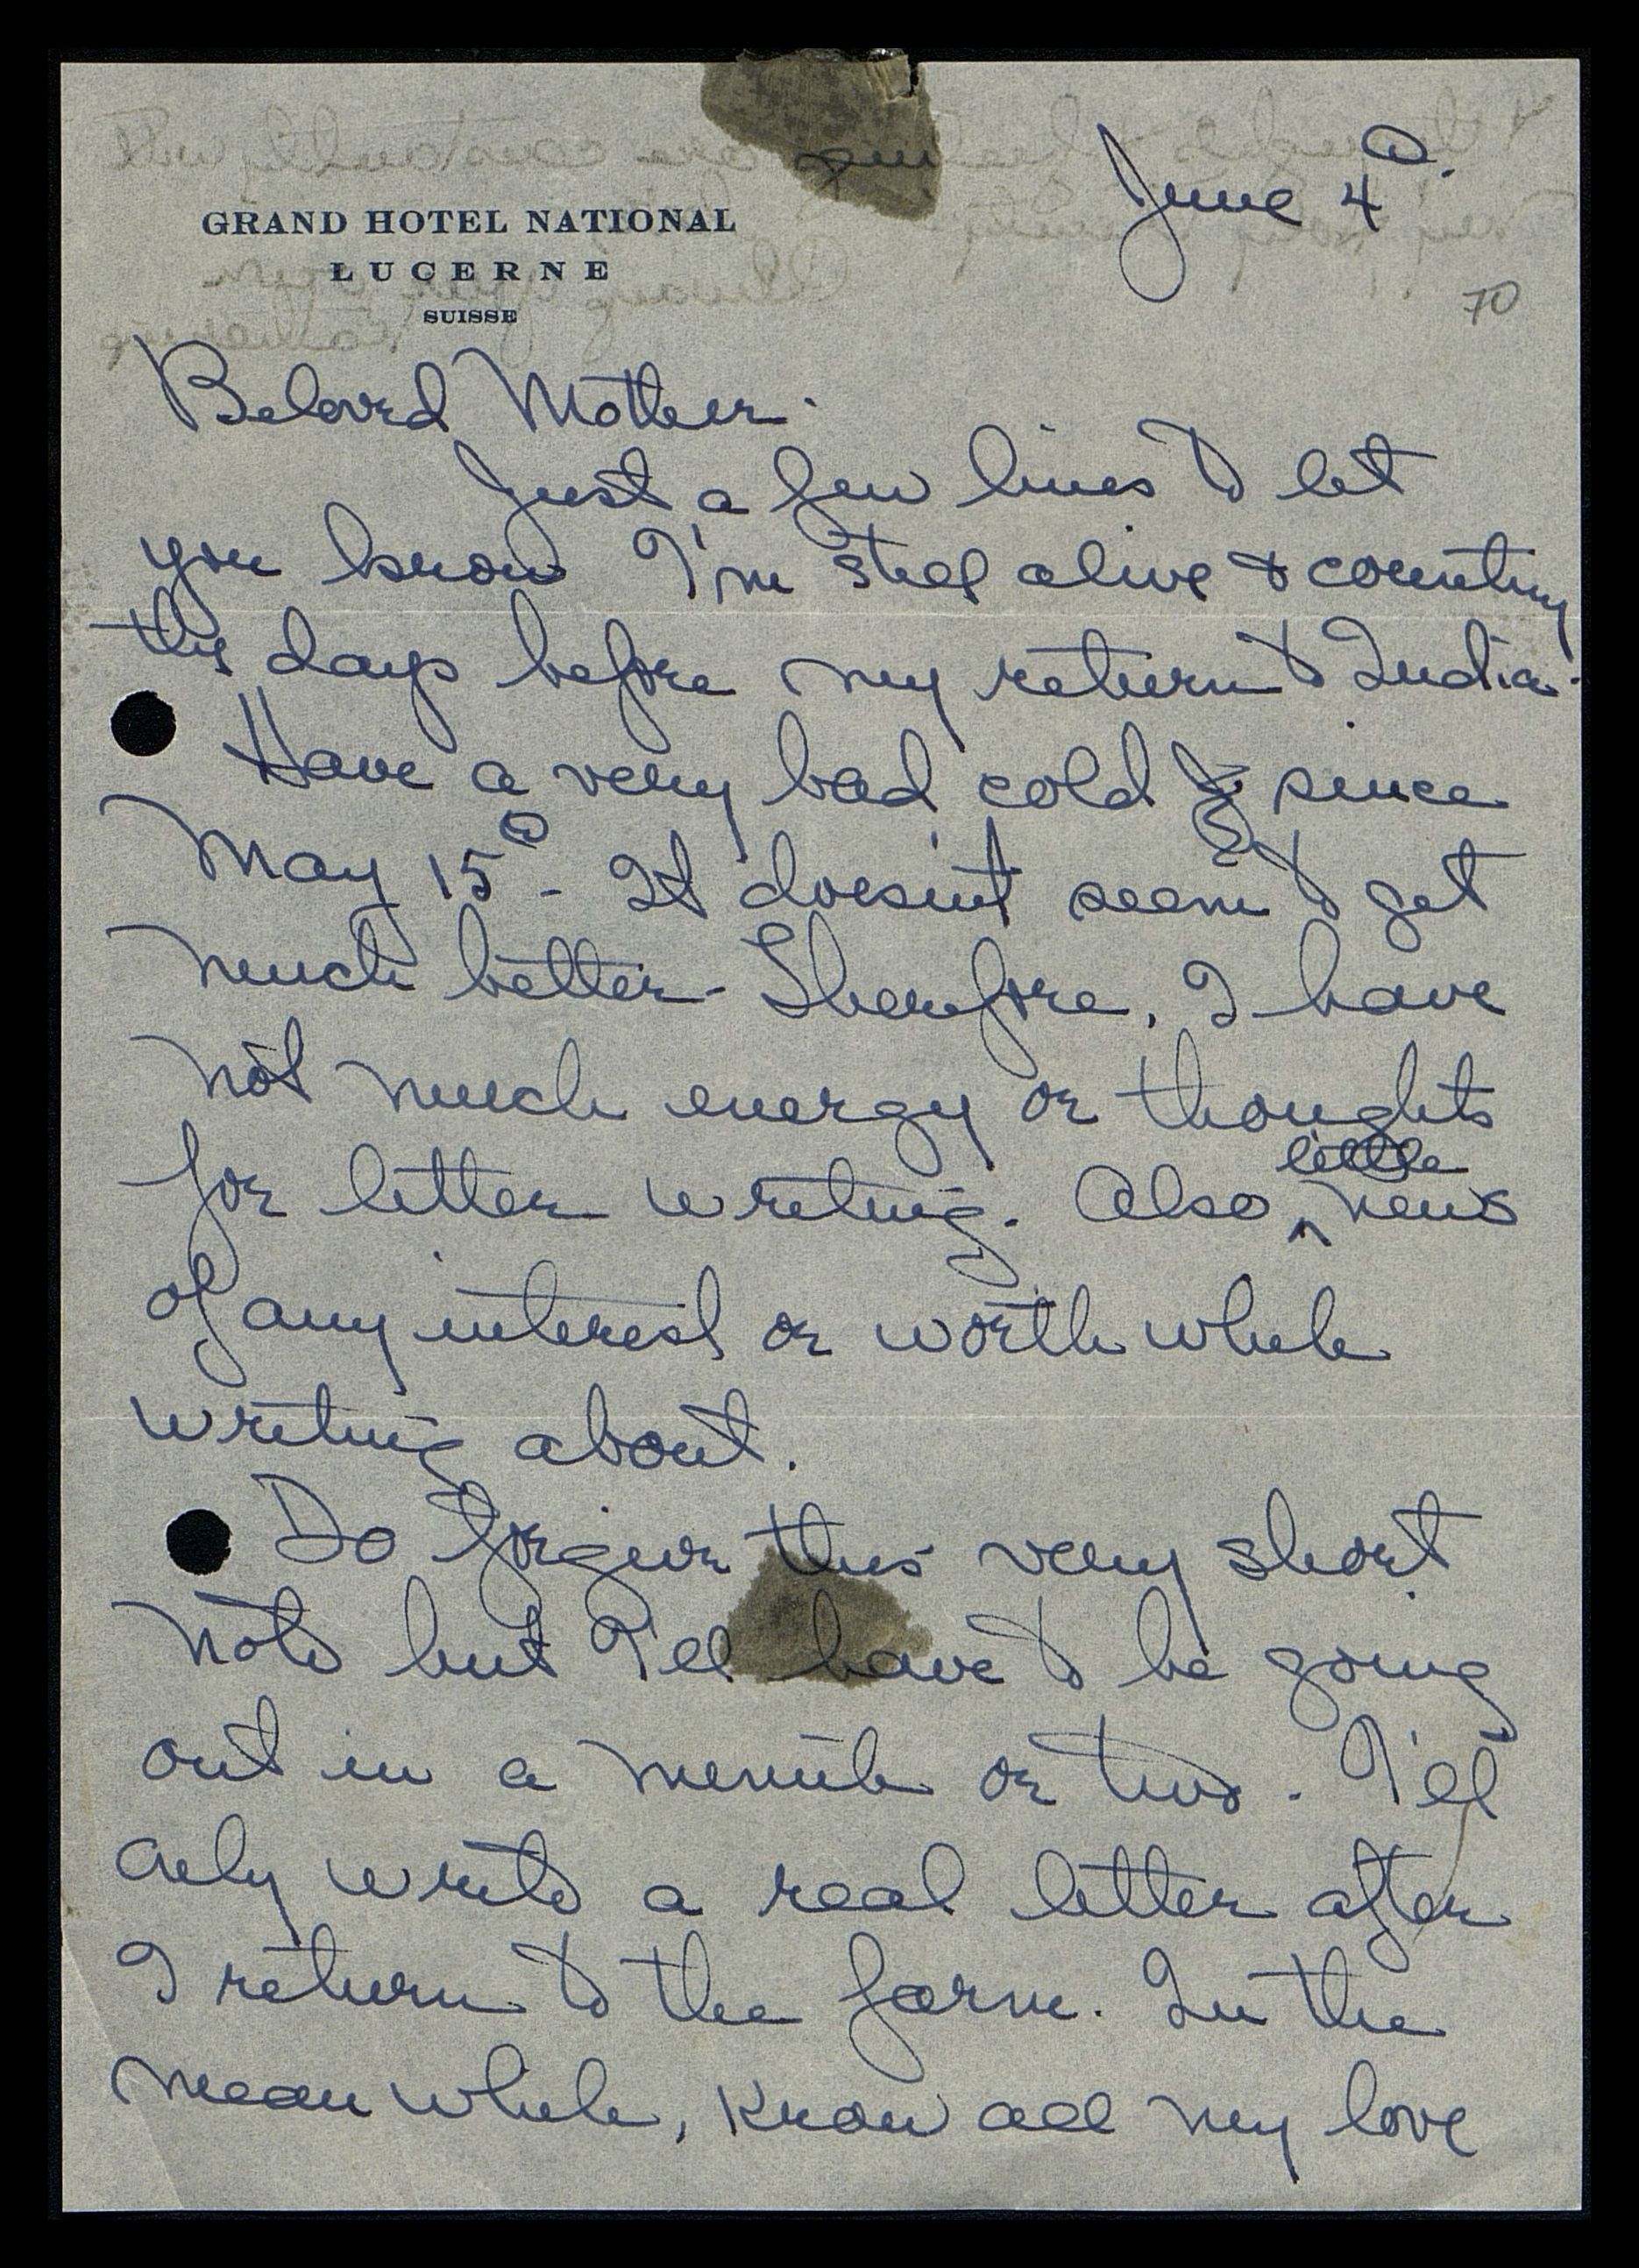 June 4th.
GRAND HOTEL NATIONAL
LUCERNE
SUISSE
70
Beloved Mother.
Just a few lines to let
you know I'm still alive & counting
the days before my return to India.
Have a very bad cold since
May 15th - It doesn't seem to get
much better - Therefore, I have
not much energy or thoughts
for letter writing. Also ^ little news
of any interest or worth while
writing about.
Do forgive this very short
note but I'll have to be going
out in a minute or two. I'll
only write a real letter after
I return to the farm. In the
mean while, know all my love